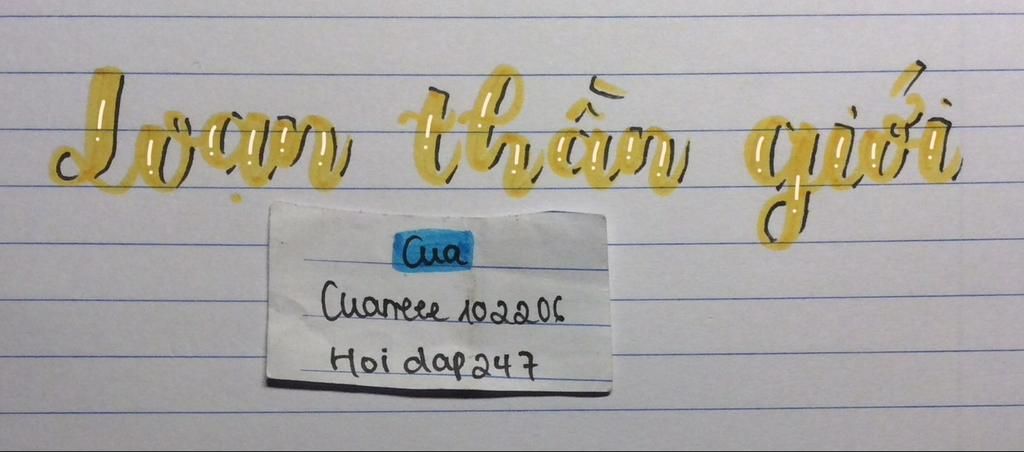 Loạn thần giới
Cua
Cuarrete102206
Hoidap247